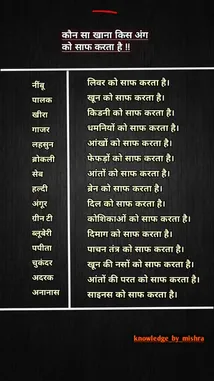 कौन सा खाना किस अंग
को साफ करता है !!
नींबू लिवर को साफ करता है।
पालक खून को साफ करता है।
खीरा किडनी को साफ करता है।
गाजर धमनियों को साफ करता है।
लहसुन आंखों को साफ करता है।
ब्रोकली फेफड़ों को साफ करता है।
सेब आंतों को साफ करता है।
हल्दी ब्रेन को साफ करता है।
अंगूर दिल को साफ करता है।
ग्रीन टी कोशिकाओं को साफ करता है।
ब्लूबेरी दिमाग को साफ करता है।
पपीता पाचन तंत्र को साफ करता है।
चुकंदर खून की नसों को साफ करता है।
अदरक आंतों की परत को साफ करता है।
अनानास साइनस को साफ करता है।
knowledge_by_mishra